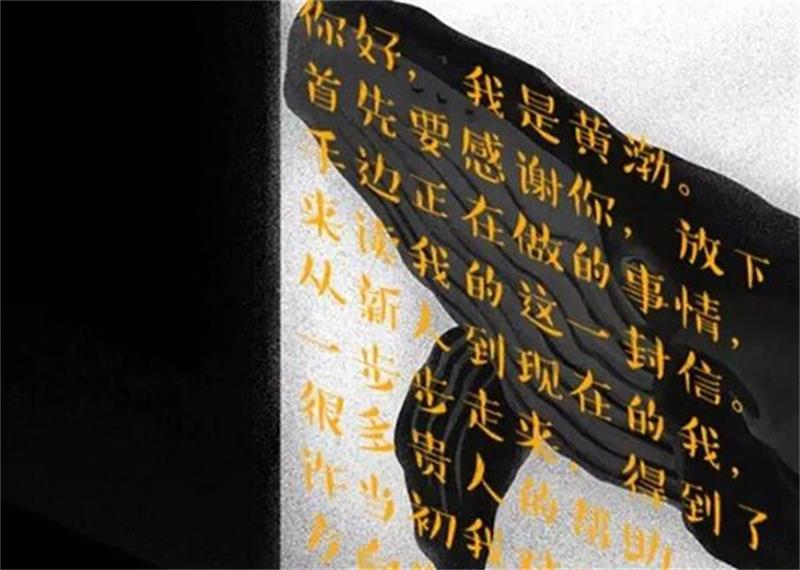 你好，我是黄渤。
首先要感谢你，放下
手边正在做的事情，
来读我的这一封信。
从新人到现在的我，
一步步走来，得到了
很多贵人的帮助
许当初我